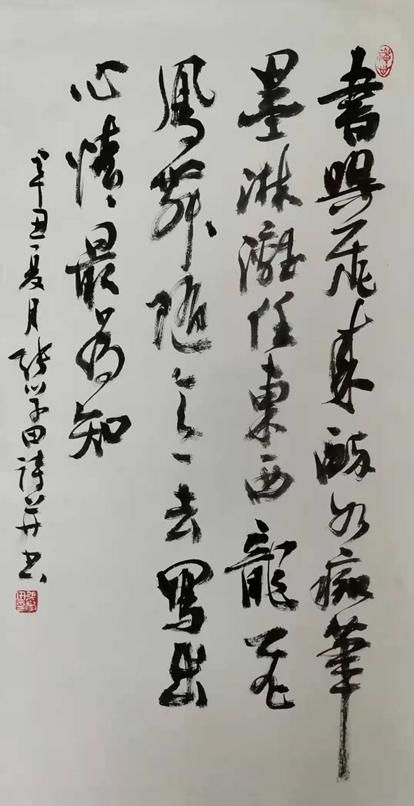 書興飛來醉如痴筆
墨淋漓任東西龍飛
鳳舞隨意去寫出
心情最為知
辛丑夏月張学田詩并书